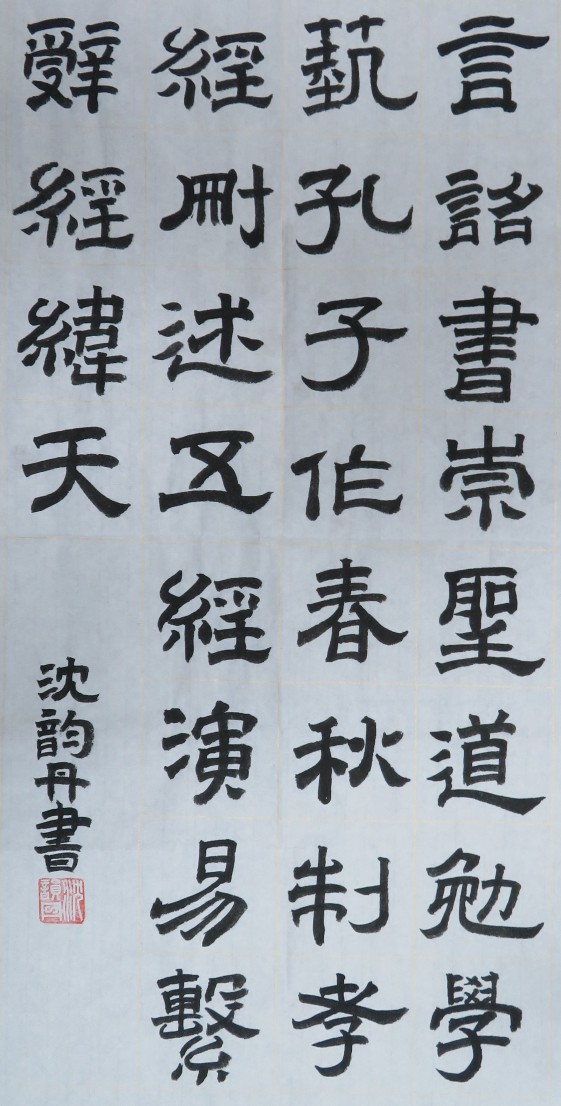 言詔書崇聖道勉學
藝孔子作春秋制孝
經刪述五經演易繫
辭經緯天
沈韵丹書